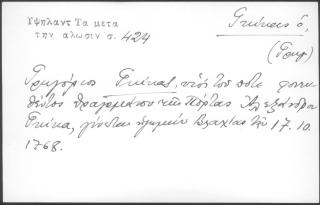 Υψηλαντ Τα μετα
την αλωσιν σ. 424
Γκίκας ὁ,
(Γρηγ)
Γρηγόριος Γκίκας, υἱὸς τοῦ ποτε φονευ
θέντος δραγομάνου τῆς Πόρτας Ἀλεξάνδρου
Γκίκα, γίνεται ἡγεμὼν Βλαχίας τὴν 17.10.
1768.